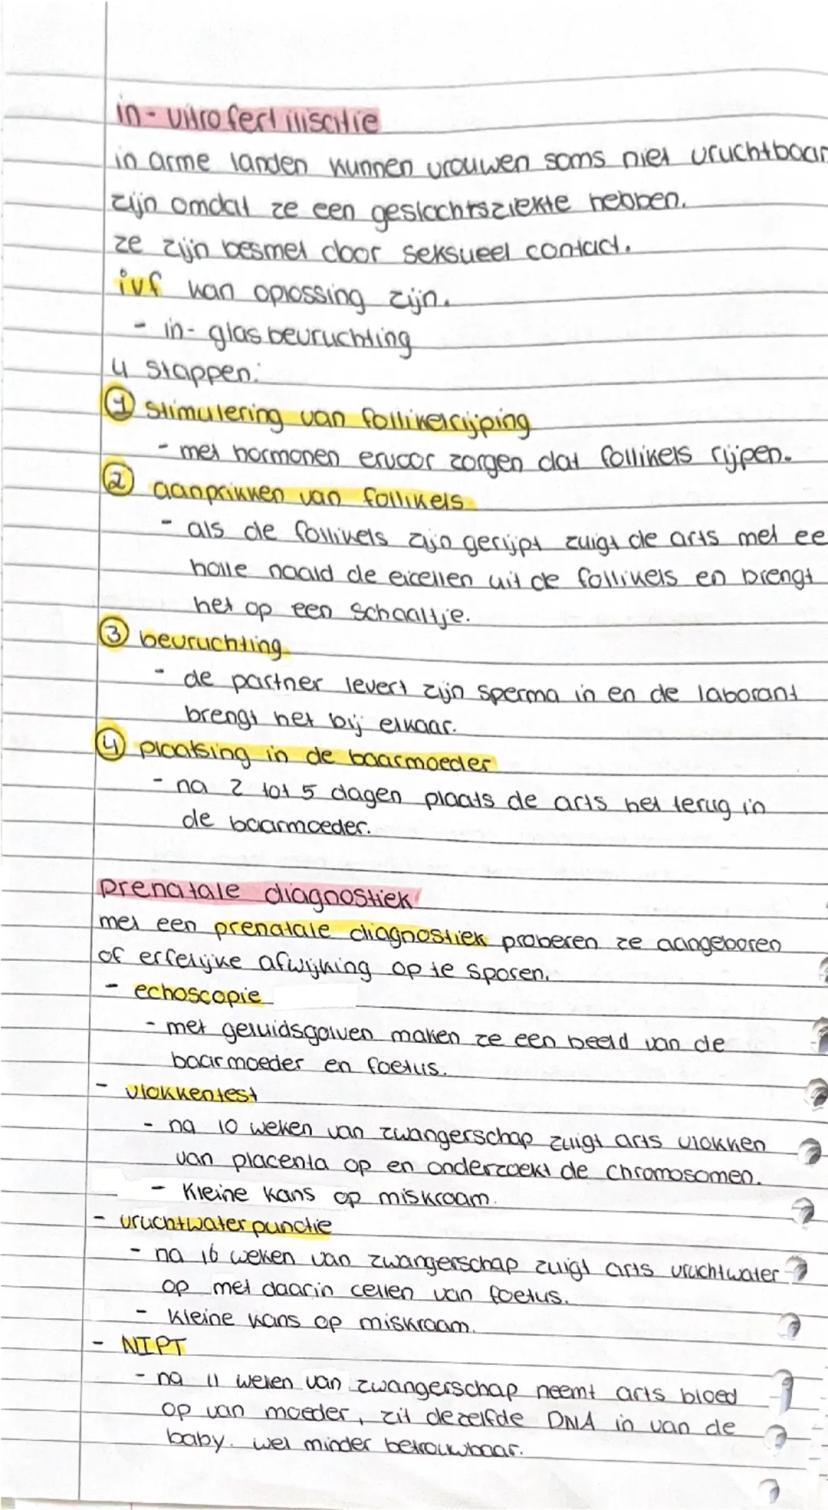 in-vitrofertilisatie
in arme landen kunnen vrouwen soms niet vruchtbaar
zijn omdat ze een geslachtsziekte hebben.
ze zijn besmet door seksueel contact.
ivf kan oplossing zijn.
- in-glasbevruchting
4 stappen:
① stimulering van follikelrijping
- met hormonen ervoor zorgen dat follikels rijpen.
② aanprikken van follikels
- als de follikels zijn gerijpt zuigt de arts met ee
holle naald de eicellen uit de follikels en brengt
het op een schaaltje.
③ bevruchting
- de partner levert zijn sperma in en de laborant
brengt het bij elkaar.
④ plaatsing in de baarmoeder
- na 2 tot 5 dagen plaats de arts het terug in
de baarmoeder.
prenatale diagnostiek
met een prenatale diagnostiek proberen ze aangeboren
of erfelijke afwijking op te sporen.
- echoscopie
- met geluidsgolven maken ze een beeld van de
baarmoeder en foetus.
- vlokkentest
- na 10 weken van zwangerschap zuigt arts vlokken
van placenta op en onderzoekt de chromosomen.
- kleine kans op miskraam.
- vruchtwaterpunctie
- na 16 weken van zwangerschap zuigt arts vruchtwater
op met daarin cellen van foetus.
- kleine kans op miskraam.
- NIPT
- na 11 weken van zwangerschap neemt arts bloed
op van moeder, zit dezelfde DNA in van de
baby. wel minder betrouwbaar.